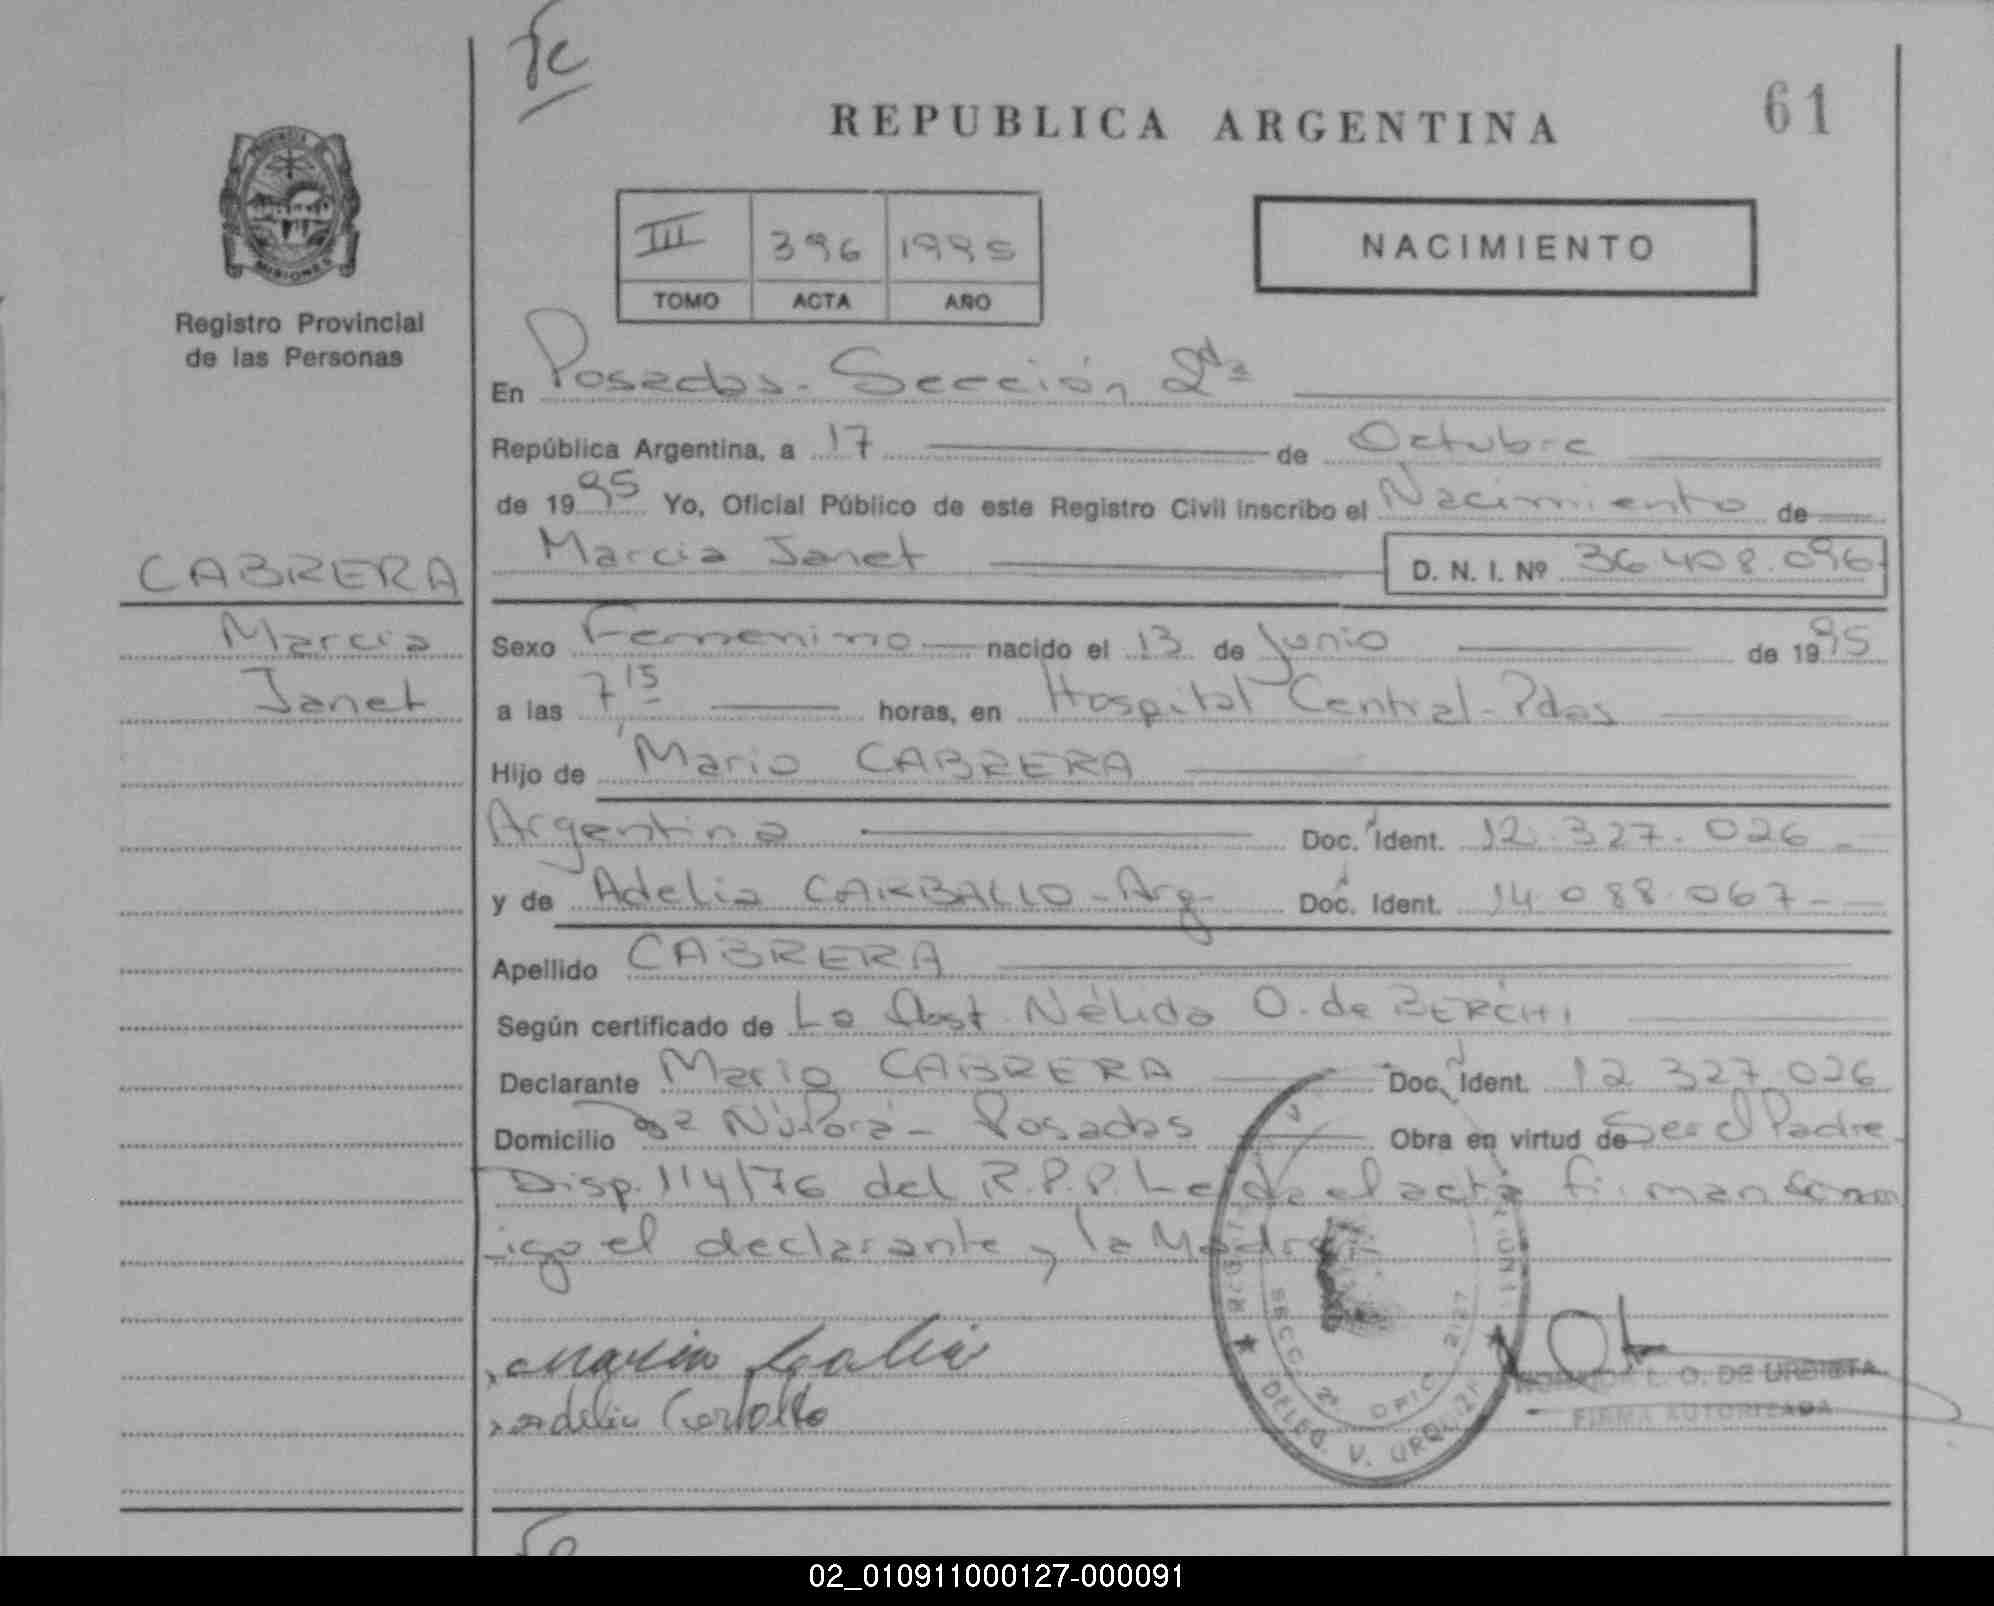 Fc
REPUBLICA ARGENTINA
61
PROVINCIA
MISIONES
Registro Provincial
de las Personas
III 396 1995
TOMO ACTA AÑO
NACIMIENTO
En Posadas - Sección 2da
República Argentina, a 17 de Octubre
de 1995 Yo, Oficial Público de este Registro Civil inscribo el Nacimiento de
Marcia Janet D. N. I. Nº 36.408.096
CABRERA
Marcia
Janet
Sexo Femenino nacido el 13 de Junio de 1995
a las 7,15 horas, en Hospital Central - Pdas
Hijo de Mario CABRERA
Argentina Doc. Ident. 12.327.026
y de Adelia CARBALLO - Arg - Doc. Ident. 14.088.067
Apellido CABRERA
Según certificado de La Obst. Nélida O. de BERCHI
Declarante Mario CABRERA Doc. Ident. 12.327.026
Domicilio Ñu Porá - Posadas Obra en virtud de Ser el Padre
Disp. 114/76 del R.P.P. Leída el acta firman conm
igo el declarante y la Madre
Adelia Carballo
SECC. 2ª OFIC. 2127
DELEG. V. URQUIZA
L. O. DE URBIETA
FIRMA AUTORIZADA
02_010911000127-000091